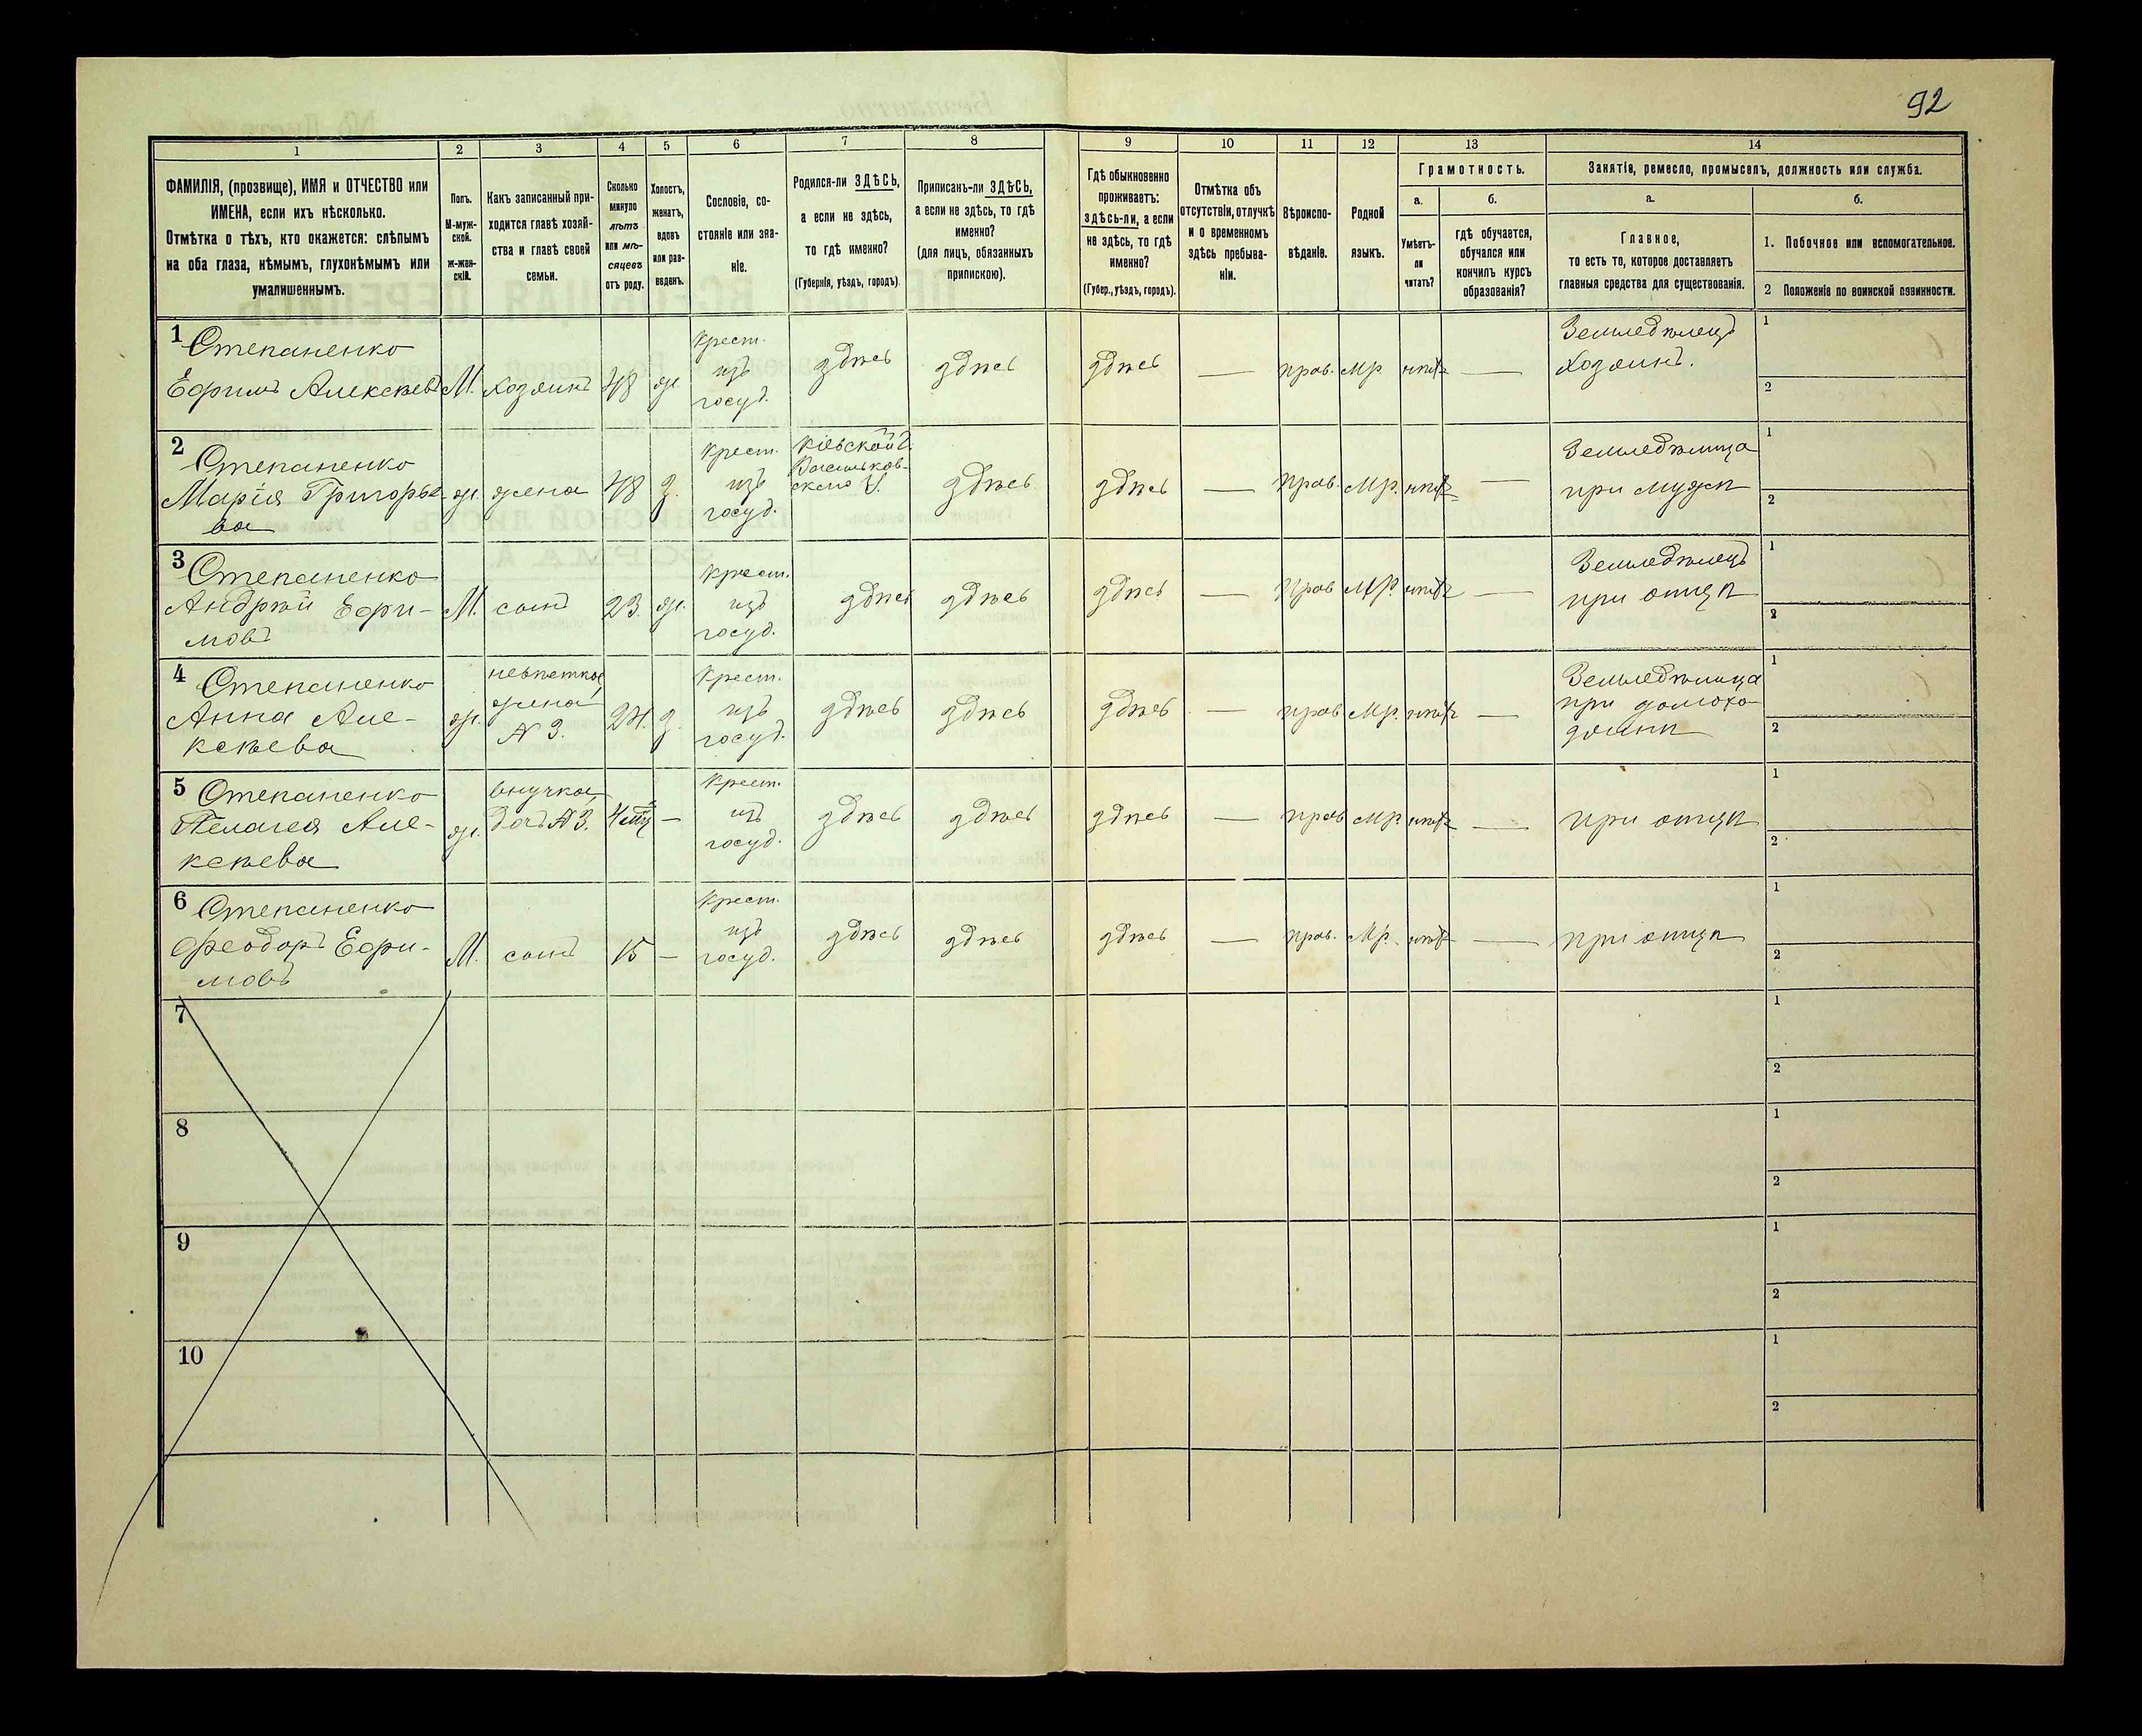 92
1 2 3 4 5 6 7 8 9 10 11 12 13 14
ФАМИЛІЯ, (прозвище), ИМЯ и ОТЧЕСТВО или
ИМЕНА, если ихъ нѣсколько.
Отмѣтка о тѣхъ, кто окажется: слѣпымъ
на оба глаза, нѣмымъ, глухонѣмымъ или
умалишеннымъ.
Полъ.
М-муж-
ской.
ж-жен-
скій.
Какъ записанный при-
ходится главѣ хозяй-
ства и главѣ своей
семьи.
Сколько
минуло
лѣтъ
или мѣ-
сяцевъ
отъ роду.
Холостъ,
женатъ,
вдовъ
или раз-
веденъ.
Сословіе, со-
стояніе или зва-
ніе.
Родился-ли ЗДѢСЬ,
а если не здѣсь,
то гдѣ именно?
(Губернія, уѣздъ, городъ)
Приписанъ-ли ЗДѢСЬ,
а если не здѣсь, то гдѣ
именно?
(для лицъ, обязанныхъ
припискою).
Гдѣ обыкновенно
проживаетъ:
здѣсь-ли, а если
не здѣсь, то гдѣ
именно?
(Губер., уѣздъ, городъ).
Отмѣтка объ
отсутствіи, отлучкѣ
и о временномъ
здѣсь пребыва-
ніи.
Вѣроиспо-
вѣданіе.
Родной
языкъ.
Грамотность.
а.
Умѣетъ-
ли
читать?
б.
гдѣ обучается,
обучался или
кончилъ курсъ
образованія?
Занятіе, ремесло, промыселъ, должность или служба.
а.
Главное,
то есть то, которое доставляетъ
главныя средства для существованія.
б.
1. Побочное или вспомогательное.
2 Положеніе по воинской повинности.
1 Степаненко
Ефимъ Алексѣевъ М. хозяинъ 48 ж. Крест. изъ госуд. здѣсь здѣсь здѣсь — прав. Мр нѣтъ — Земледѣлецъ
Хозяинъ.
1
2
2 Степаненко
Марія Григорье-
ва ж. жена 48 з. Крест. изъ госуд. Кіевской г.
Васильков-
скаго У. здѣсь здѣсь — прав. Мр. нѣтъ — Земледѣлица
при мужѣ
1
2
3 Степаненко
Андрѣй Ефи-
мовъ М. сынъ 23. ж. Крест. изъ госуд. здѣсь здѣсь здѣсь — Прав Мр. нѣтъ — Земледѣлецъ
при отцѣ
1
2
4 Степаненко
Анна Але-
ксѣева ж. невѣстка,
жена
N 3. 24. з. Крест. изъ госуд. здѣсь здѣсь здѣсь — прав Мр. нѣтъ — Земледѣлица
при домохо-
зяинѣ
1
2
5 Степаненко
Пелагея Але-
ксѣева ж. внучка,
дочь N 3. — Крест. изъ госуд. здѣсь здѣсь здѣсь — прав Мр. нѣтъ — при отцѣ
1
2
6 Степаненко
Феодоръ Ефи-
мовъ М. сынъ 15 — Крест. изъ госуд. здѣсь здѣсь здѣсь — прав. Мр. нѣтъ — при отцѣ
1
2
7
1
2
8
1
2
9
1
2
10
1
2